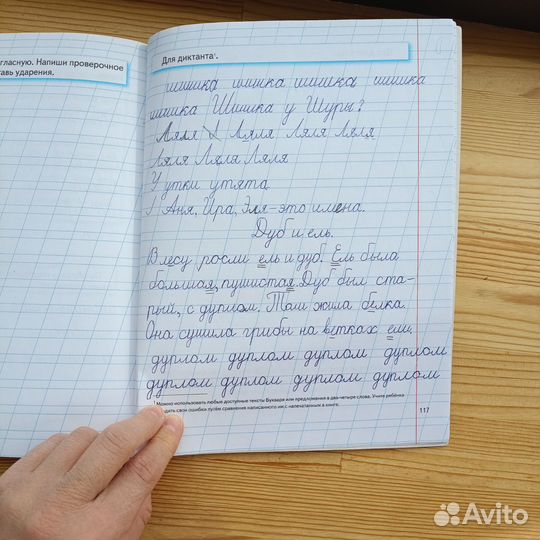 гласную. Напиши проверочное
тавь ударения.
Для диктанта¹.
шишка шишка шишка шишка
шишка Шишка у Шуры?
Ляля Ляля Ляля Ляля
Ляля Ляля Ляля
У утки утята
Аня, Ира, Эля-это имена.
Дуб и ель.
В лесу росли ель и дуб. Ель была
большая, пушистая. Дуб был ста-
рый, с дуплом. Там жила белка.
Она сушила грибы на ветках ели.
дуплом дуплом дуплом дуплом
дуплом дуплом дуплом дуплом
¹ Можно использовать любые доступные тексты Букваря или предложения в два-четыре слова. Учите ребёнка
дить свои ошибки путём сравнения написанного им с напечатанным в книге.
117
Avito